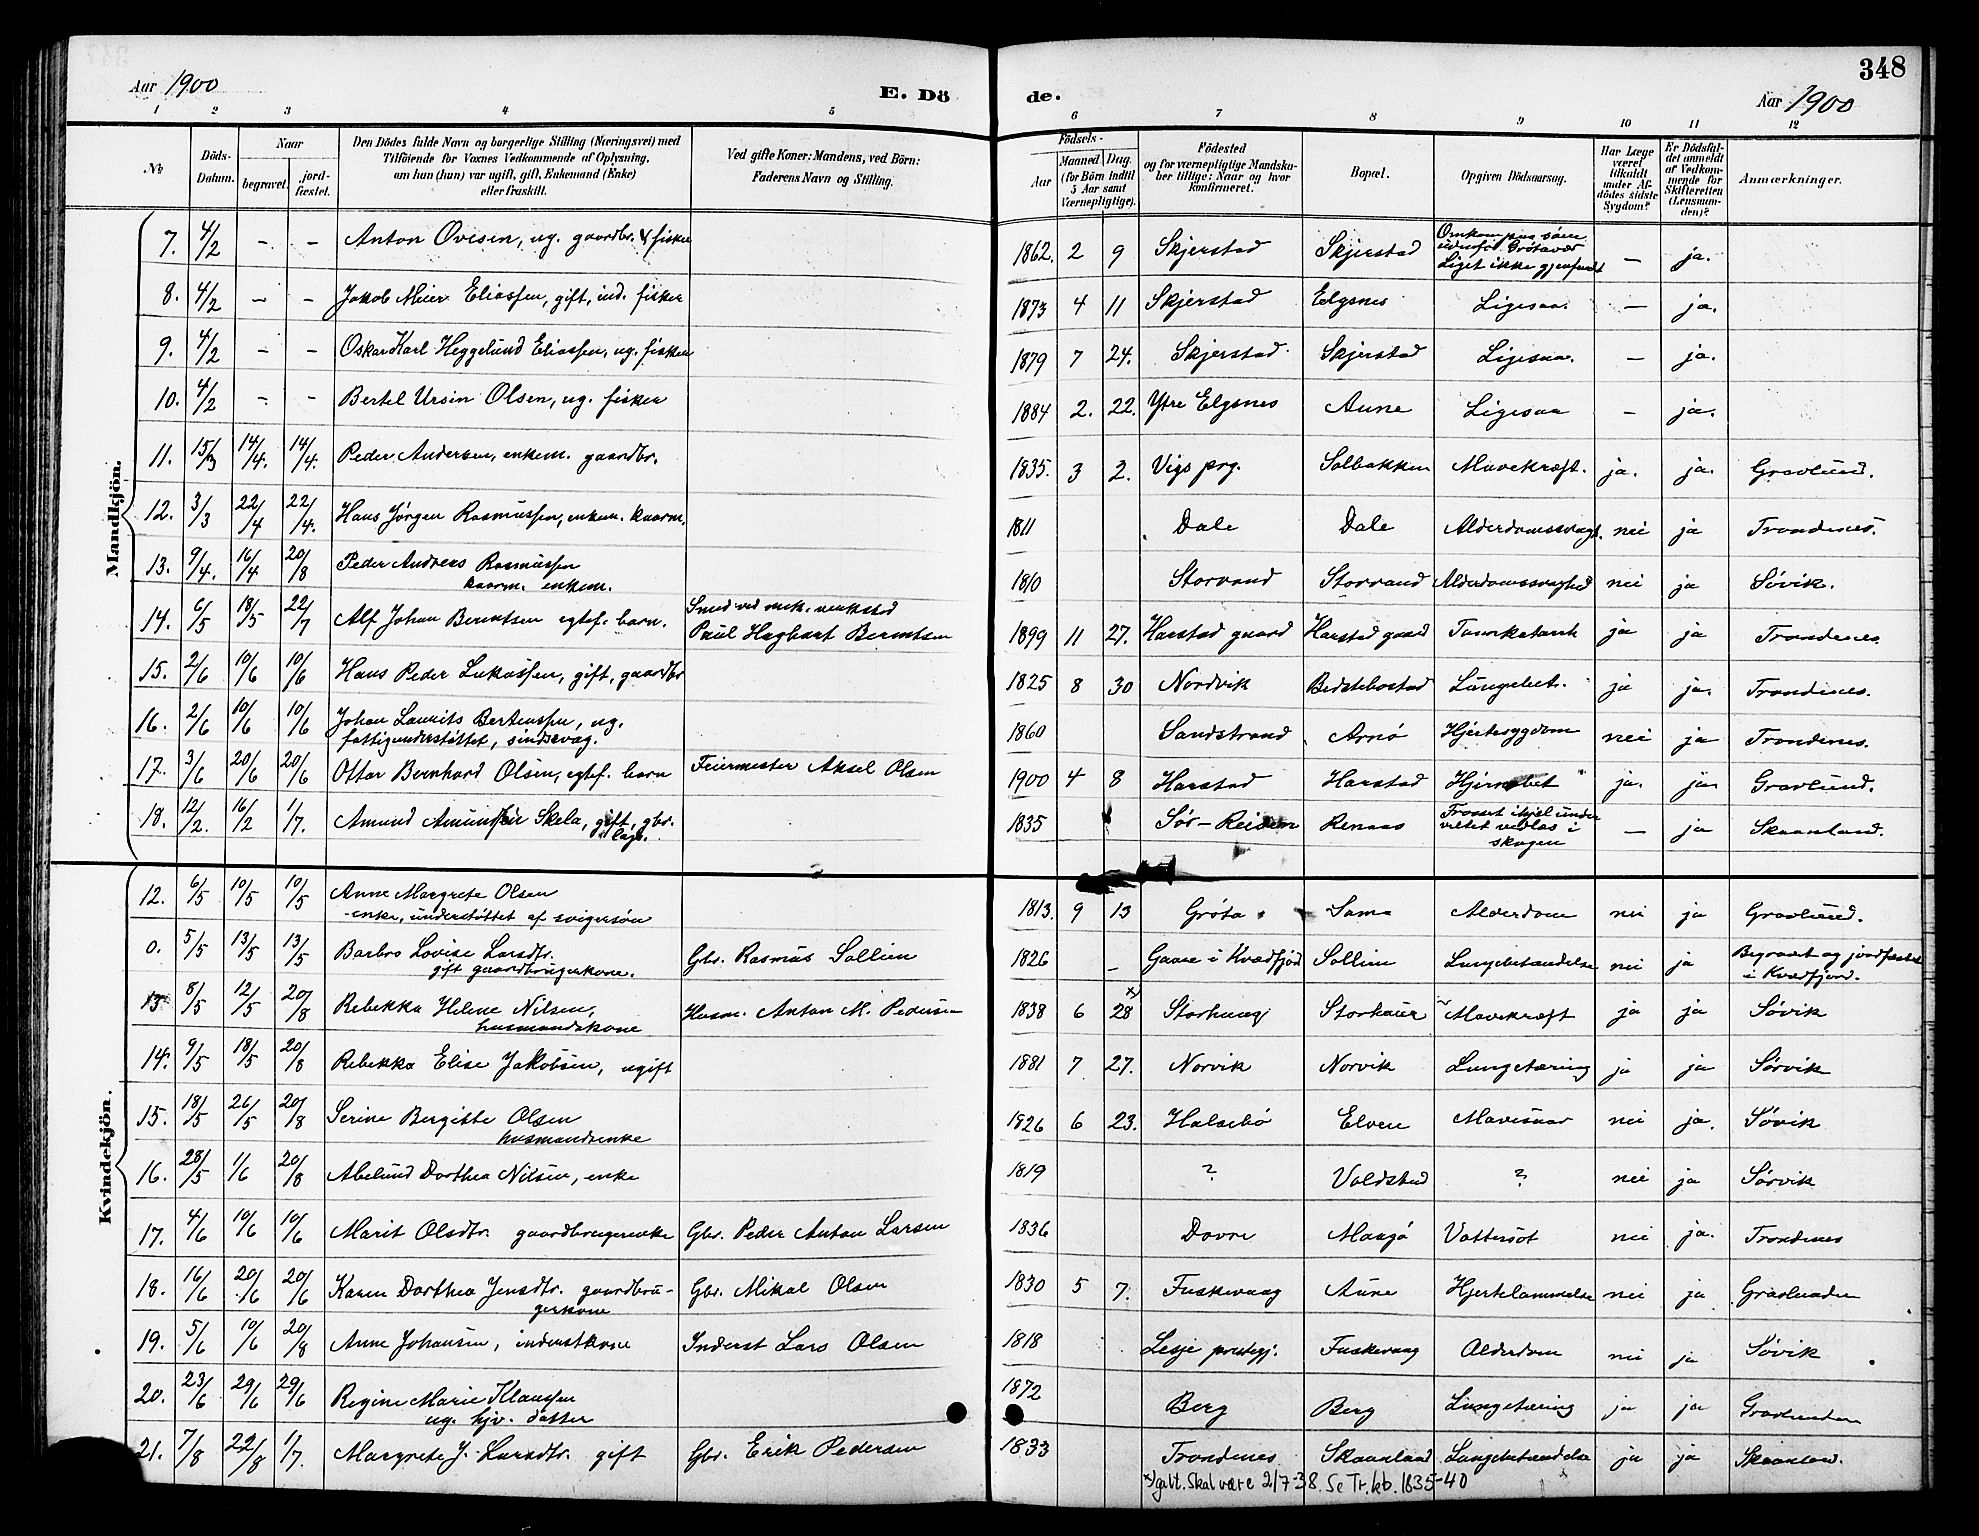 348
Aar 1900
E. Dö
de.
Aar 1900
1 2 3 4 5 6 7 8 9 10 11 12
No
Döds-Datum.
Naar
begravet.
jord-fæstet.
Den Dödes fulde Navn og borgerlige Stilling (Næringsvei) med
Tilföiende for Voxnes Vedkommende af Oplysning,
om han (hun) var ugift, gift, Enkemand (Enke)
eller fraskilt.
Ved gifte Koner: Mandens, ved Börn:
Faderens Navn og Stilling.
Födsels-
Aar
Maaned Dag
(for Börn indtil
5 Aar samt
Værnepligtige).
Födested
og for værnepligtige Mandska-
ber tillige: Naar og hvor
konfirmeret.
Bopæl.
Opgiven Dödsaarsag.
Har Læge
været
tilkaldt
under Af-
dödes sidste
Sygdom?
Er Dödsfal-
det anmeldt
af Vedkom-
mende for
Skifteretten
(Lensman-
den)?
Anmærkninger.
Mandkjön.
7. 4/2 - - Anton Ovesen, ug. gaardbr. & fisker 1862. 2 9 Skjerstad Skjerstad Omkom paa søen udenfor Grøtavær Liget ikke gjenfundt — ja.
8. 4/2 - - Jakob Meier Eliassen, gift, ind. fisker 1873 4 11 Skjerstad Elgsnes Ligesaa. — ja.
9. 4/2 - - Oskar Karl Heggelund Eliassen, ug. fisker 1879 7 24. Skjerstad Skjerstad Ligesaa. — ja.
10. 4/2 - - Bertel Ursin Olsen, ug. fisker 1884 2. 22. Ytre Elgsnes Aune Ligesaa — ja.
11. 15/3 14/4. 14/4. Peder Andersen, enkem. gaardbr. 1835. 3 2. Vigs prg. Solbakken Mavekræft. ja. ja. Gravlund.
12. 3/3 22/4 22/4. Hans Jørgen Rasmussen, enkem. kaarm. 1811 Dale Dale Alderdomssvagh. nei ja Trondenes.
13. 9/4. 16/4 20/8 Peder Andreas Rasmussen
kaarm. enkem. 1810 Storvand Storvand Alderdomssvaghed nei ja Søvik.
14. 6/5 18/5 22/7 Alf Johan Berntsen egtef. barn. Smed ved mek. verksted
Paul Hagbart Berntsen 1899 11 27. Harstad gaard Harstad gaard ja ja Trondenes.
15. 2/6 10/6 10/6 Hans Peder Lukassen, gift, gaardbr 1825 8 30 Nordvik Bedstebostad Lungebet. ja ja. Trondenes.
16. 2/6 10/6 10/6 Johan Laurits Bertenssen, ug.
fattigunderstøttet, sindssvag. 1860 Sandstrand Arnø Hjertesygdom nei ja Trondenes.
17. 3/6 20/6 20/6 Ottar Bernhard Olsen, egtef. barn Feiermester Aksel Olsen 1900 4 8 Harstad Harstad Hjernebet ja. ja. Gravlund.
18. 12/2. 16/2 1/7. Amund Skela, gift, gbr. 1835 Sør-Reisen Renaas Frosset ihjel under veltet vedlas i skogen — ja Skaanland.
Kvindekjön.
12. 6/5 10/5 10/5 Anne Margrete Olsen
enke, understøttet af svigersøn 1813. 9 13 Grøta Sama Alderdom nei ja Gravlund.
0. 5/5 13/5 13/5 Barbro Lovise Larsdtr.
gift gaardbrugerkone. Gbr. Rasmus Sollien 1826 - Gaare i Kvædfjord Sollien Lungebetændelse nei ja Begravet og jordfæstet i Kvædfjord.
13 8/5 12/5 20/8 Rebekka Helene Nilsen,
husmandskone Husm. Anton M. Pedersen 1838 6 28 x) Storhaug Storhauer Mavekræft ja ja Søvik
14. 9/5 18/5 20/8 Rebekka Elise Jakobsen, ugift 1881 7 27. Norvik Norvik Lungetæring ja ja Sørvik
15. 18/5 26/5 20/8 Serine Bergitte Olsen
husmandsenke 1826 6 23. Halsebø Elven Mavesaar nei ja. Søvik
16. 28/5 1/6 20/8 Abelund Dorthea Nilsen, enke 1819 ? Voldstad ? nei ja Sørvik
17. 4/6 10/6 10/6 Marit Olsdtr. gaardbrugerenke Gbr. Peder Anton Larsen 1836 Dovre Maagø Vattersot nei ja. Trondenes
18. 16/6 20/6 20/6 Karen Dorthea Jensdtr. gaardbru-
gerkone Gbr. Mikal Olsen 1830 5 7. Fuskevaag Aune Hjertelammelse nei ja Gravlunden
19. 5/6 10/6 20/8 Anne Johansen, inderstkone Inderst Lars Olsen 1818 Lesje prestegj. Fuskevaag Alderdom nei ja Søvik
20. 23/6 29/6 29/6 Regine Marie Klaussen
ug. hjv. datter 1872 Berg Berg Lungetæring ja ja Gravlunden
21. 7/8 22/8 1/7. Margrete J. Larsdtr. gift Gbr. Erik Pedersen 1833 Trondenes Skaanland Lungebetændelse ja ja Skaanland.
x) galt. skal være 2/7-38. Se Tr.kb. 1835-40